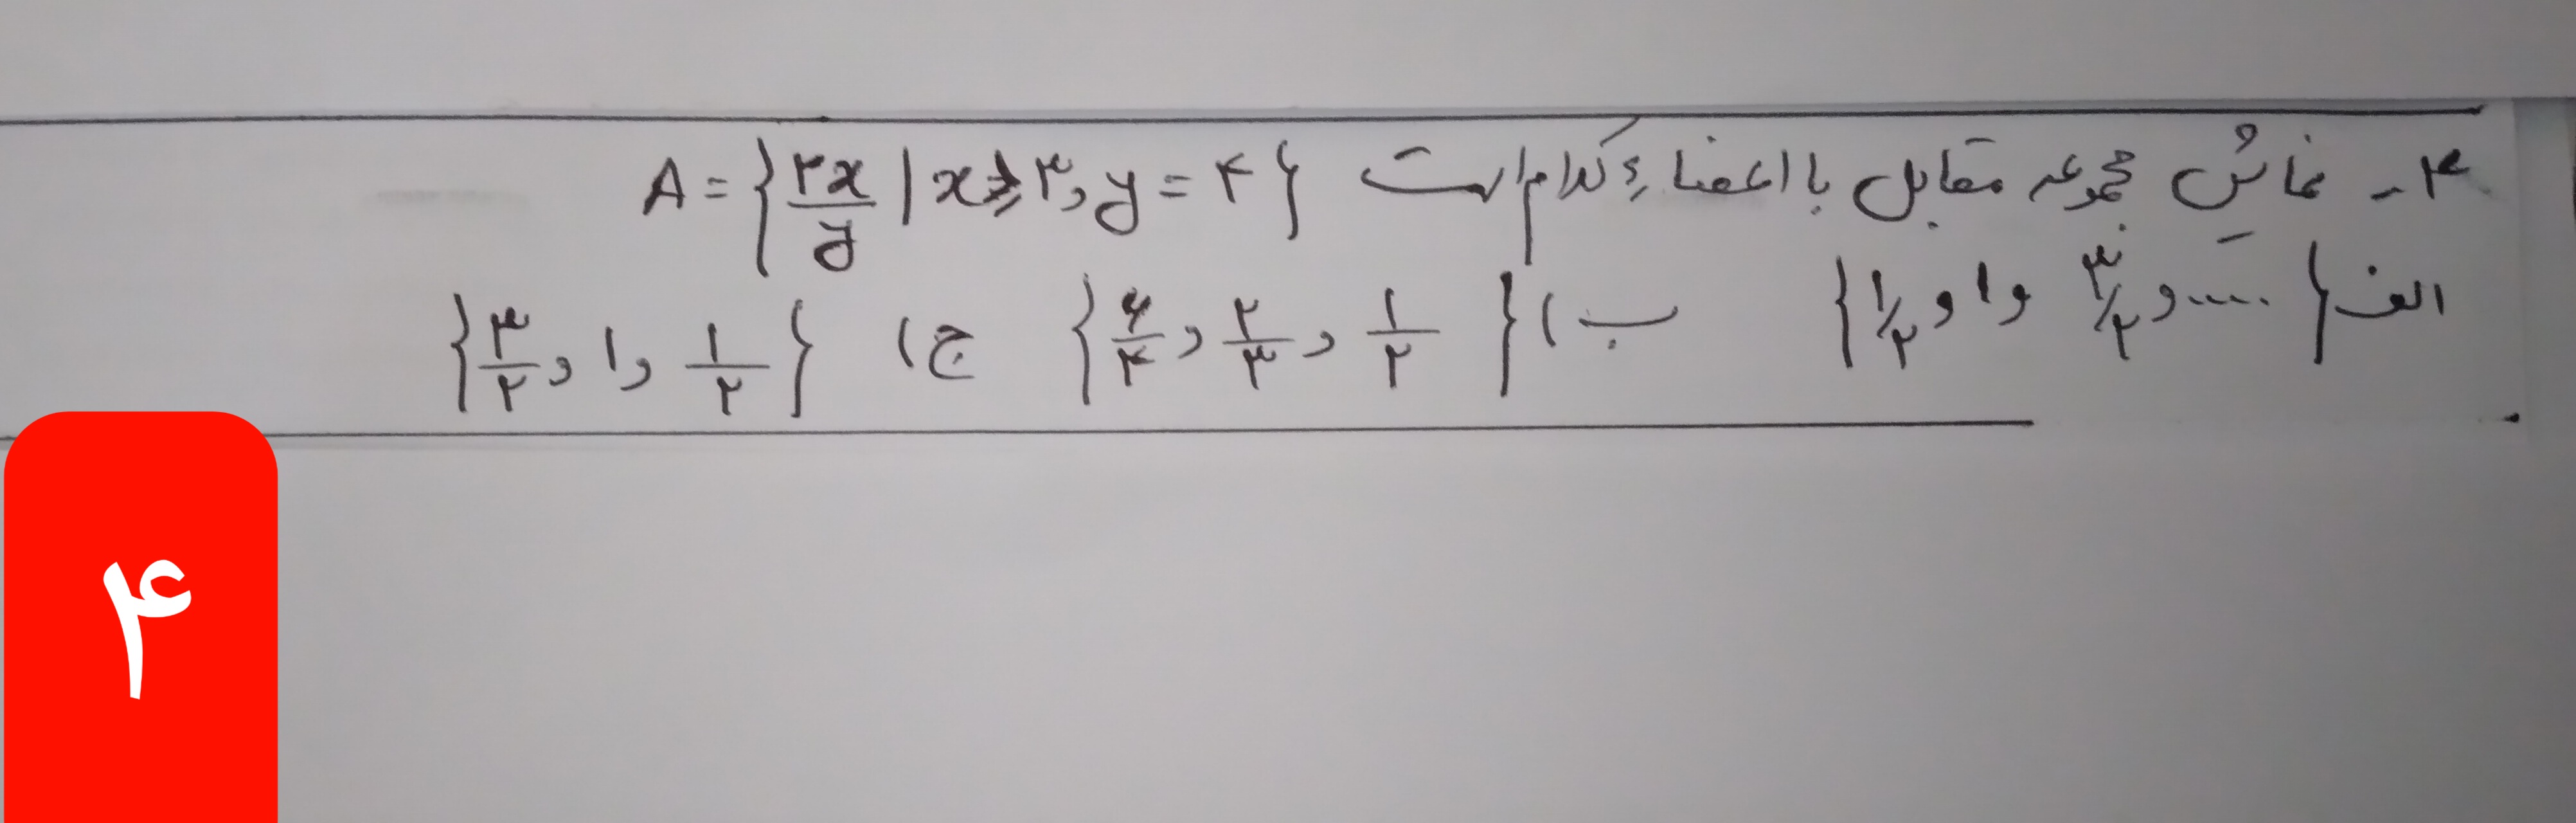 ۴- نمایش مجموعه مقابل با اعضاء کدام است A = {۲x/y | x ≤ ۳ , y = ۴}
الف { ۱/۲ و ۱ و ۳/۲ و .... } ب) { ۶/۴ , ۲/۳ , ۱/۲ } ج) { ۳/۲ , ۱ , ۱/۲ }
۴